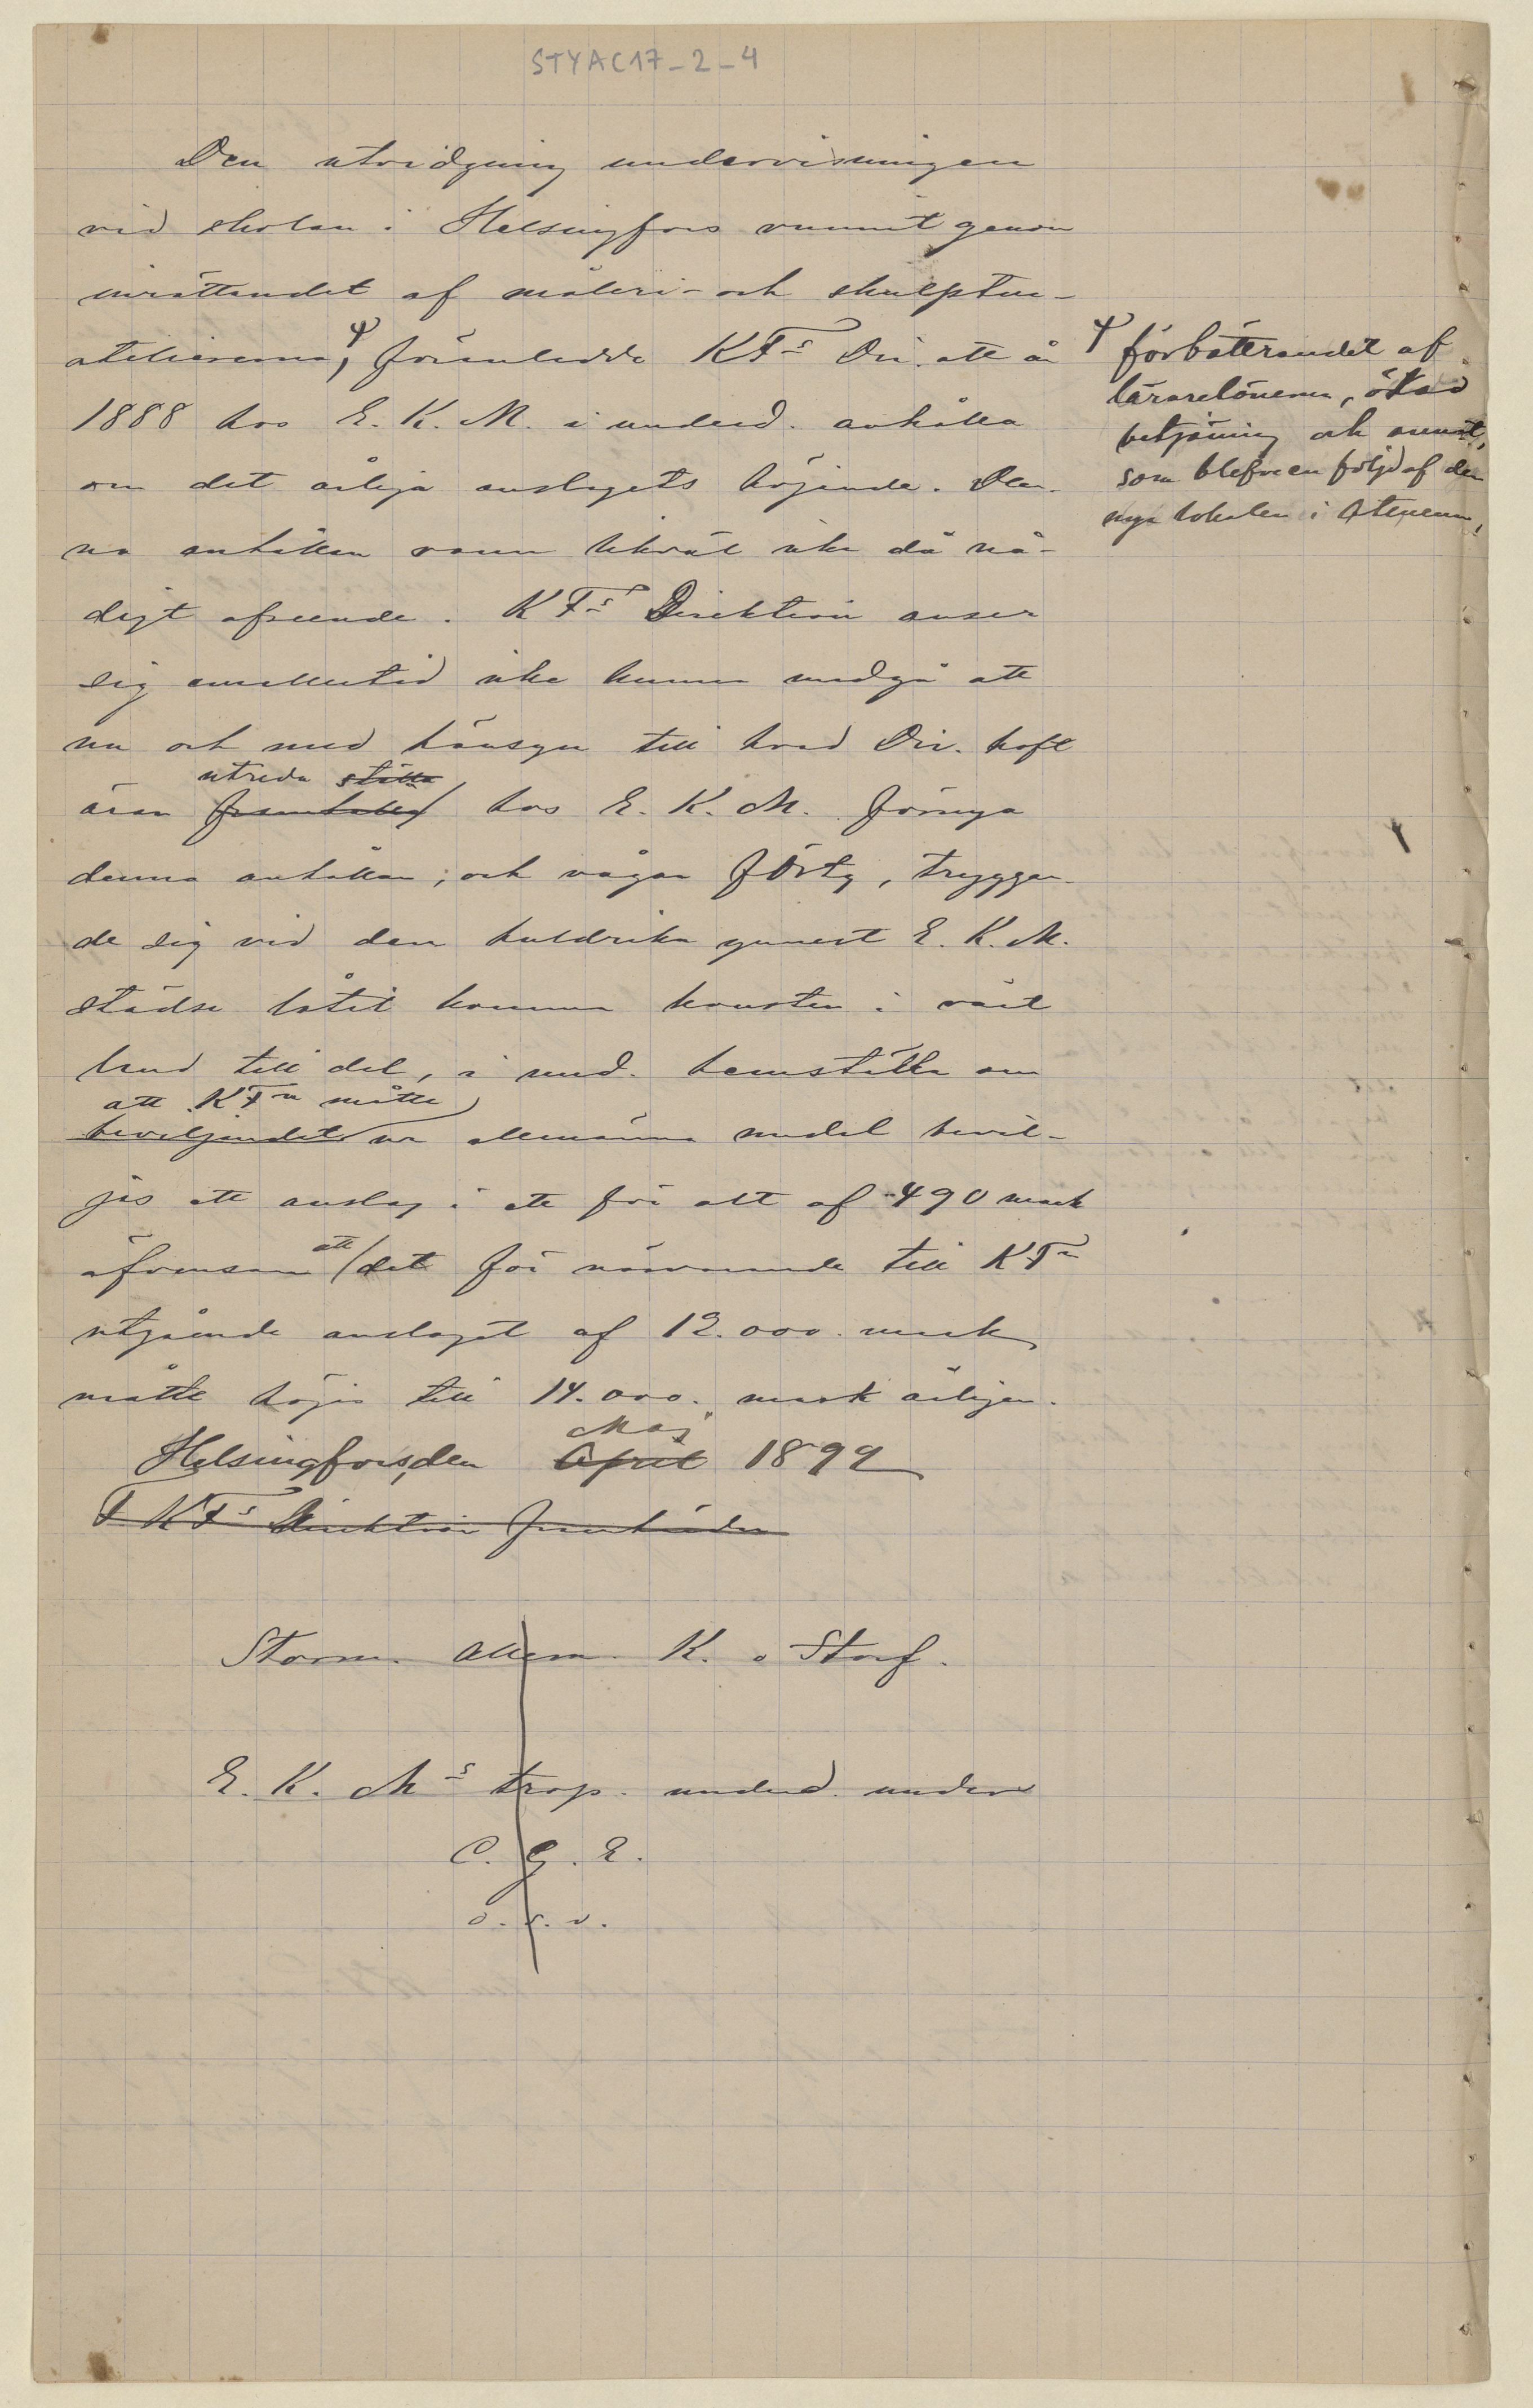 STYAC17_2_4
Den utvidgning undervisningen
vid skolan i Helsingfors vunnit genom
inrättandet af måleri- och skulptur-
ateliererna, förenledde KFs Dir. att år
1888 hos E. K. M. i underd. anhålla
om det årliga anslagets höjande. Den-
na anhållan vann likväl icke då nå-
digt afseende. KFs Direktion anser
sig emellertid icke kunna undgå att
nu och med hänsyn till hvad Dir. haft
utreda ställa
äran framhålla hos E. K. M. förnya
denna anhållan; och vågar förty, tryggan-
de sig vid den huldrika ynnest E. K. M.
städse låtit komma konsten i vårt
land till del, i und. hemställa om
att KFn måtte
beviljandet ur allmänna medel bevil-
jas ett anslag i ett för allt af 490 mark
äfvensom att det för närvarande till KFn
utgående anslaget af 12.000. mark
måtte höjas till 14.000. mark årligen.
Maj
Helsingfors, den April 1892
F KFs Direktion
Storm. Allern. K. o Storf.
E. K. Ms trop. underd. under
C. G. E.
o. s. v.
förbättrandet af
lärarelönerna, ökad
betjäning och annat,
som blefve en följd af den
nya lokalen i Ateneum,